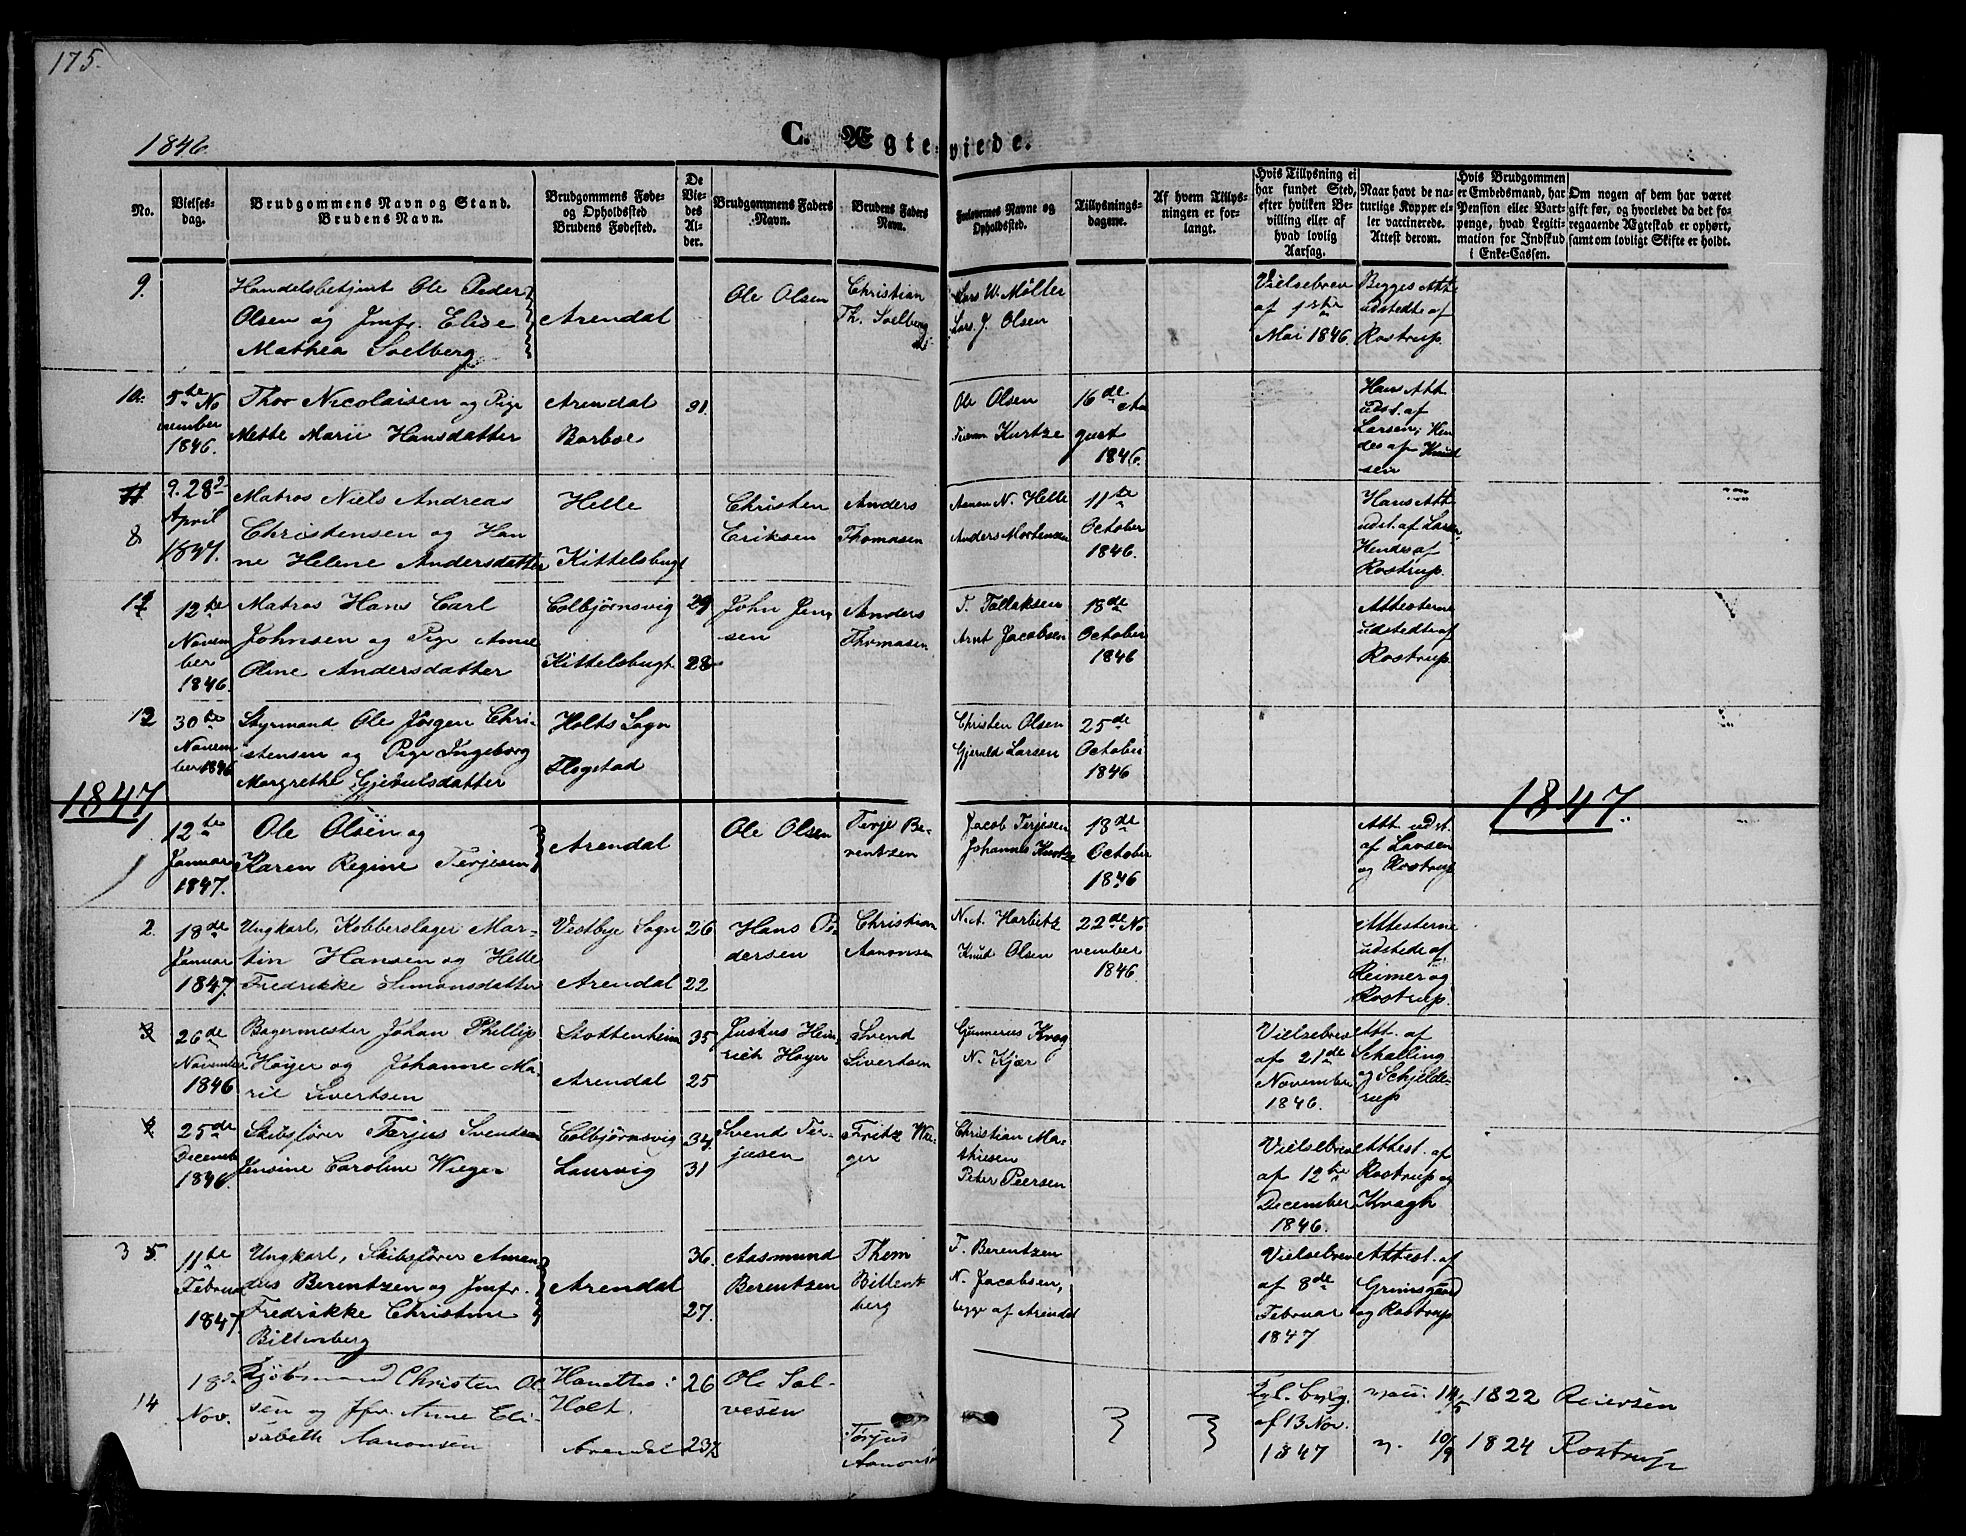 175.
1846.
C. Ægteviede.
No.
Vielses-
dag.
Brudgommens Navn og Stand.
Brudens Navn.
Brudgommens Føde-
og Opholdssted
Brudens Fødested.
De
Vie-
des
Al-
der.
Brudgommens Faders
Navn.
Brudens Faders
Navn.
Forlovernes Navne og
Opholdssted.
Tillysnings-
dagene.
Af hvem Tillys-
ningen er for-
langt.
Hvis Tillysning ei
har fundet Sted,
efter hvilken Be-
villing eller af
hvad lovlig
Aarsag.
Naar havt de na-
turlige Kopper el-
ler vaccinerede.
Attest derom.
Hvis Brudgommen
er Embedsmand, har
Pension eller Vart-
penge, hvad Legiti-
mation for Indskud
i Enke-Cassen.
Om nogen af dem har været
gift før, og hvorledet da det fo-
regaaende Ægteskab er ophørt,
samt om lovligt Skifte er holdt.
9.
Handelsbetjent Ole Peder
Olsen og Jmfr. Elise
Mathea Soelberg
Arendal
Ole Olsen
Christian
Th. Soelberg
Lars W. Møller
Lars J. Olsen
Vielsebrev
af 1ste
Mai 1846.
Begges Att.
udstedte af
Rostrup.
10.
5te No
vember
1846.
Thor Nicolaisen og Pige
Mette Marie Hansdatter
Arendal
Barboe
31.
Ole Olsen
Kurtze
16de Au
gust
1846.
Hans Att.
udst. af
Larsen, Hen
des af Knud
sen
11
8
9. 28
April
1847.
Matros Niels Andreas
Christensen og Han
ne Helene Andersdatter
Helle
Kittelsbugt
Christen
Eriksen
Anders
Thomasen
Aanen N. Helle
Anders Mortensen
11te
October
1846.
Hans Att.
udst. af Larsen,
Hendes af
Rostrup.
12
12te
Novem
ber
1846.
Matros Hans Carl
Johnsen og Pige Anne
Oline Andersdatter
Colbjørnsvig
Kittelsbugt
29
28
John Jen-
sen
Anders
Thomasen
T. Tallaksen
Arnt Jacobsen
18de
October
1846
Attesterne
udstedte af
Rostrup.
13
30te
Novem
ber 1846
Styrmand Ole Jørgen Chri-
stensen og Pige Ingeborg
Margrethe Gjerulsdatter
Holts Sogn
Flogstad
Christen Olsen
Gjeruld Larsen
25de
October
1846
1847
1847.
1.
12te
Januar
1847.
Ole Olsen og
Karen Regine Terjesen
Arendal
Ole Olsen
Terje Be-
rentzen
Jacob Terjesen
Johannes Kurtze
18de
October
1846
Att. udst.
af Larsen
og Rostrup
2.
18de
Januar
1847.
Ungkarl, Kobberslager Mar-
tin Hansen og Helle
Fredrikke Simonsdatter
Vestbye Sogn
Arendal
26
22
Hans Pe-
dersen
Christian
Aanonsen
N. A. Harbitz
Knut Olsen
22de No
vember
1846.
Attesterne
udstede af
Reimer og
Rostrup.
3
26de
November
1846
Bagermester Johan Phillip
Høyer og Johanne Ma-
rie Sivertsen
Stottenheim
Arendal
35
25
Justus Hein
rich Høyer
Svend
Sivertsen
Gunnerius Krog
N. Kjær
Vielsebrev
af 21de
November
1846.
Att. af
Schalling
og Schjelde-
rup
25de
Decemb
1846.
Skibsfører Terjus Svendsen
Jensine Caroline Wieger
Colbjørnsvig
Laurvig
34.
31
Svend Ter-
jusen
Fritz Wie-
ger
Christian Ma-
thiesen
Peter Peersen
Vielsebrev
af 12te
December
1846.
Attest. af
Rostrup og
Kragh.
3 5
11te
Februar
1847
Ungkarl, Skibsfører Aman
dus Berentzen og Jmfr.
Fredrikke Christine
Biltenberg
Arendal
36.
27.
Aasmund
Berentzen
Them
Biltent
berg
F. Berentzen
N. Jacobsen,
begge af Arendal
Vielsebrev
af 8de
Februar
1847
Attest. af
Grimsgaard
og Rostrup
14
18
Nov.
Kjøbmand Christen Ol
sen og Jfr. Anne Eli
sabeth Aanonsen
Holt.
Arendal
26
23½
Ole Sal-
vesen
Terjus
Aanonsen
Kgl. bevg.
af 13 Nov.
1847
vacc. 14/5 1822 Reiersen
v. 10/9 1824 Rostrup